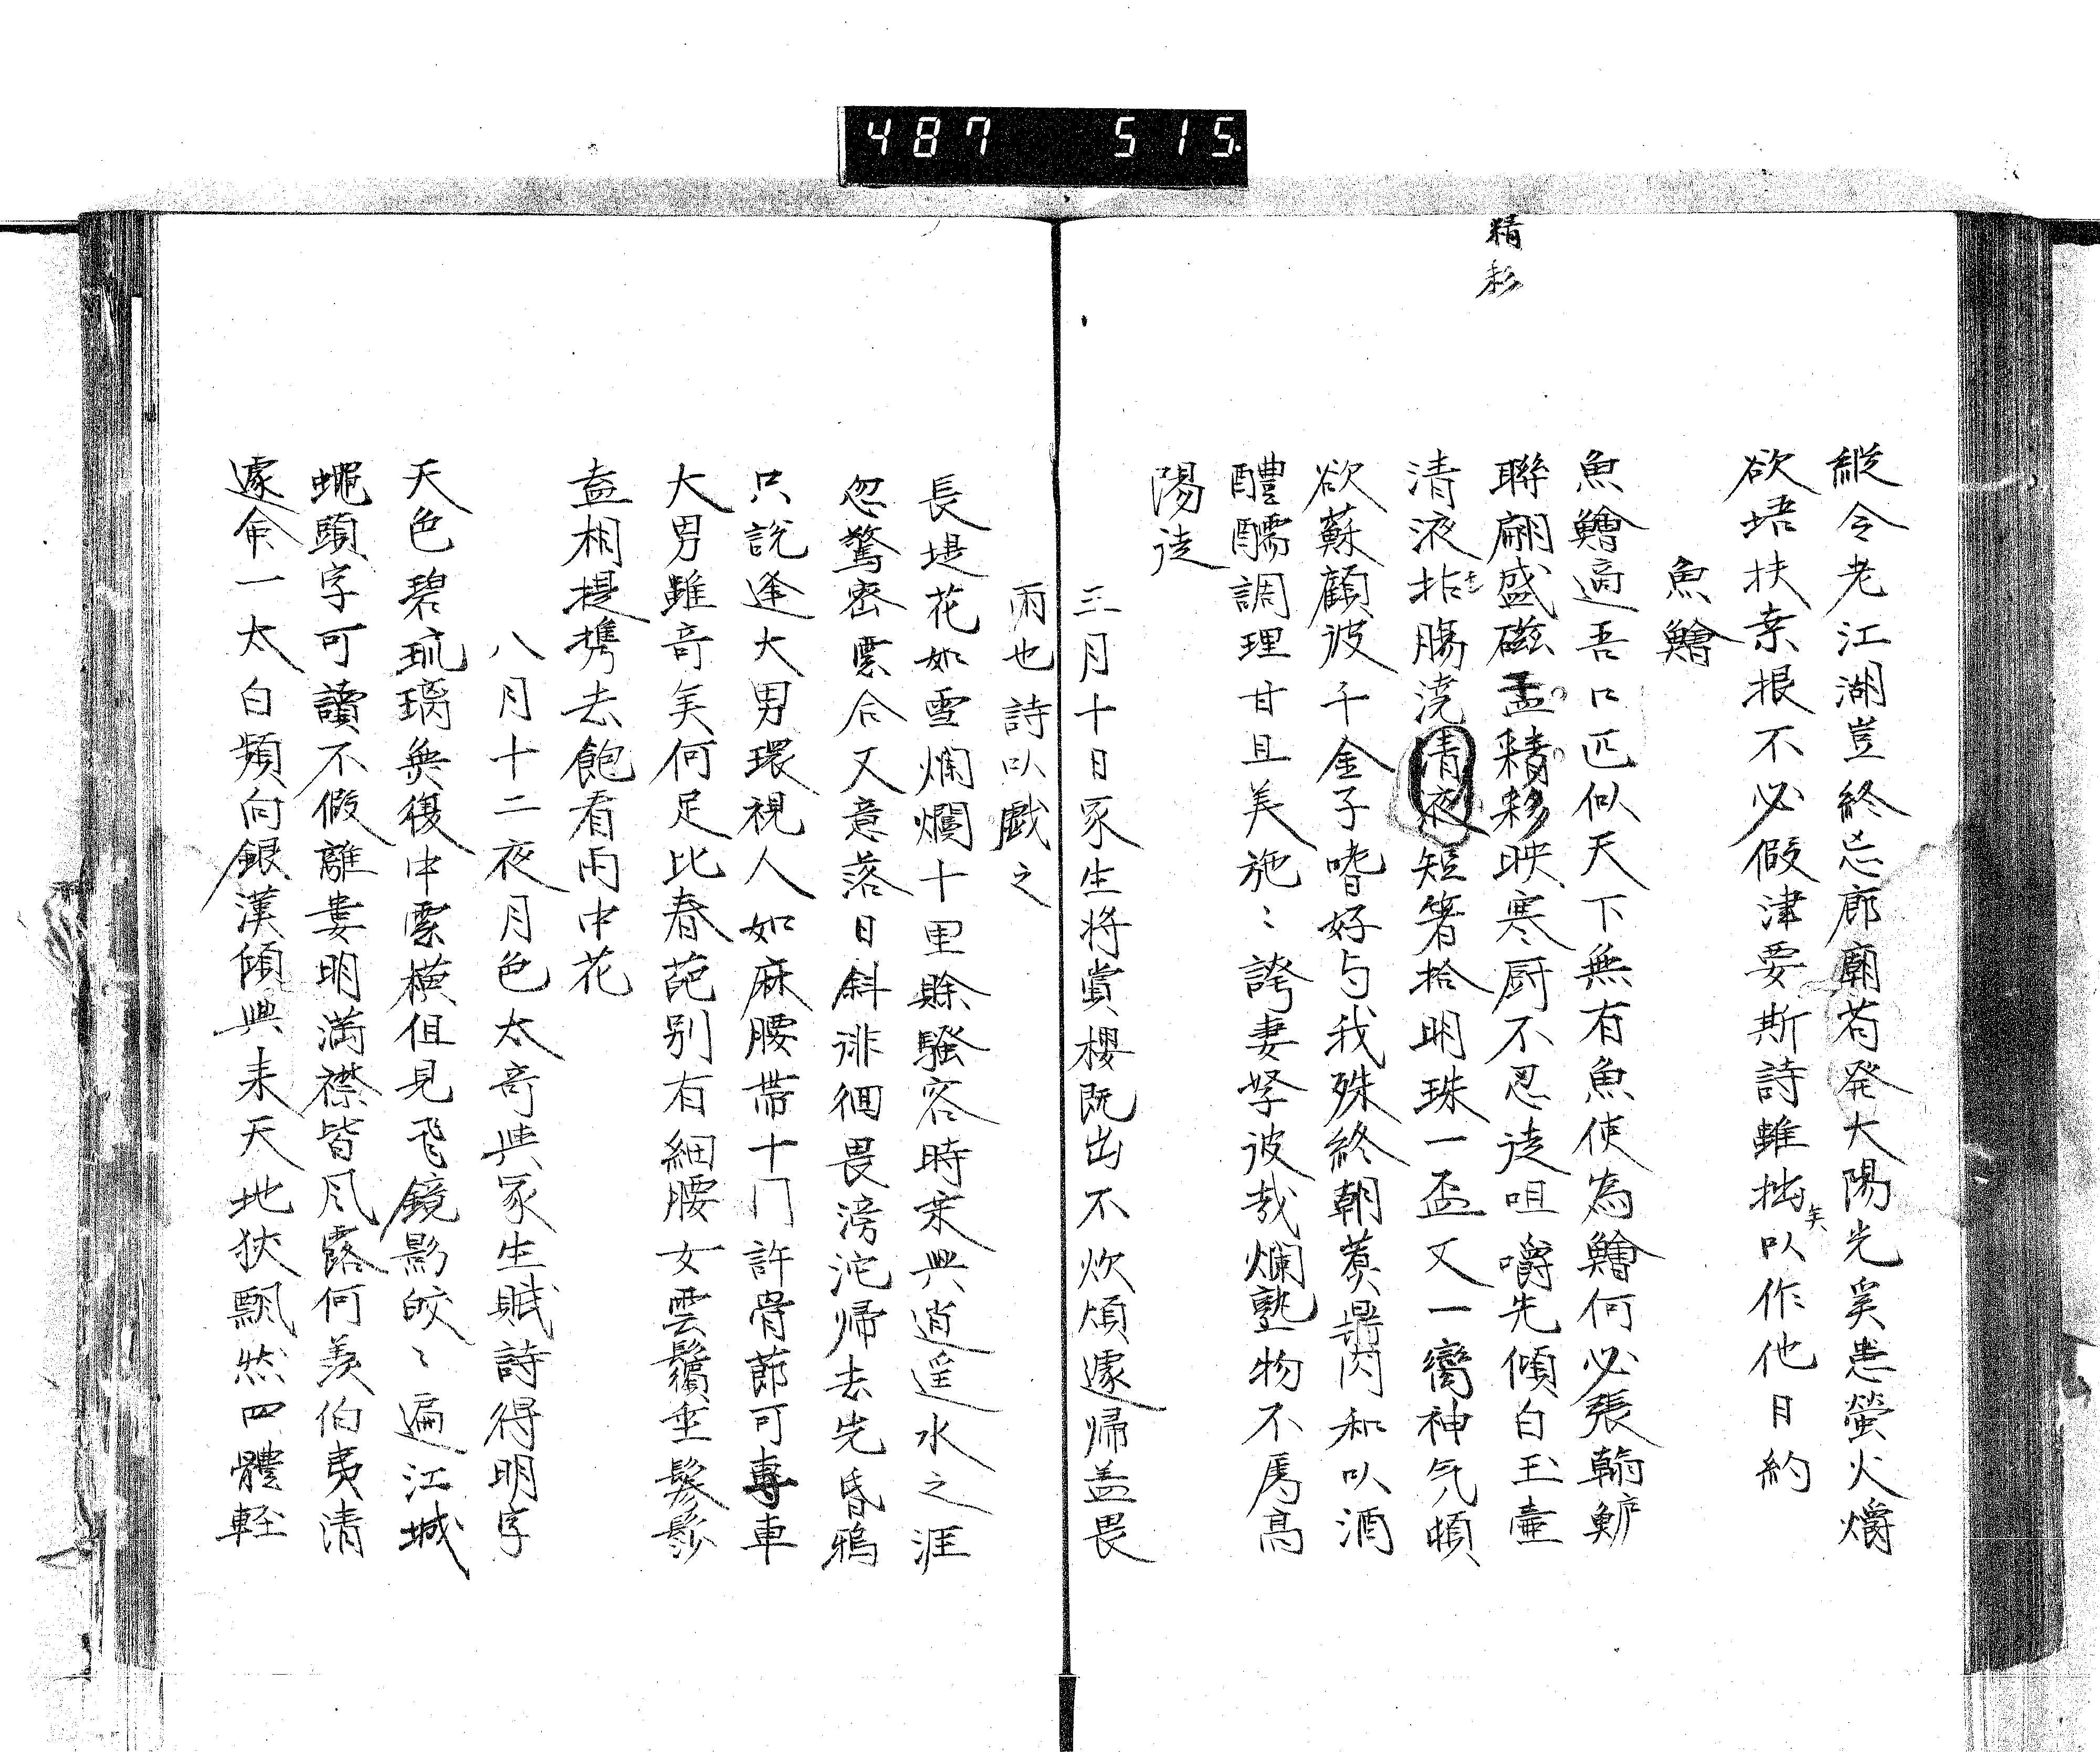 487 515.
精彩
縦令老江湖豈終忘廊廟苟発大陽光奚患螢火爝
欲培扶桒根不必假津要斯詩雖拙矣以作他日約
魚鱠
魚鱠適吾口匹似天下無有魚使為鱠何必張翰鱸
聯翩盛磁盂精彩映寒厨不忍徒咀嚼先傾白玉壷
清液拈腸澆清夜短箸拾明珠一盃又一臠神気頓
欲蘇顧彼千金子嗜好与我殊終朝煮鼎肉和以酒
醴醹調理甘且美施〻誇妻孥彼哉爛熟物不馬高
陽徒
三月十日豕生将賞櫻既出不炊煩遽帰盖畏
雨也詩以戯之
長堤花如雪爛爛十里賖騒客時来興逍遥水之涯
忽驚密雲合又意落日斜徘徊畏滂沱帰去先昏鴉
只説逢大男環視人如麻腰帯十门許骨節可専車
大男雖奇矣何足比春葩别有細腰女雲鬟垂鬖髿
盍相提携去飽看雨中花
八月十二夜月色太奇興豕生賦詩得明字
天色碧琉璃無復中雲横但見飛鏡影皎〻遍江城
蝿頭字可讀不假離婁明満襟皆風露何羨伯夷清
遽命一太白頻向銀漢傾興来天地狹飄然四體軽